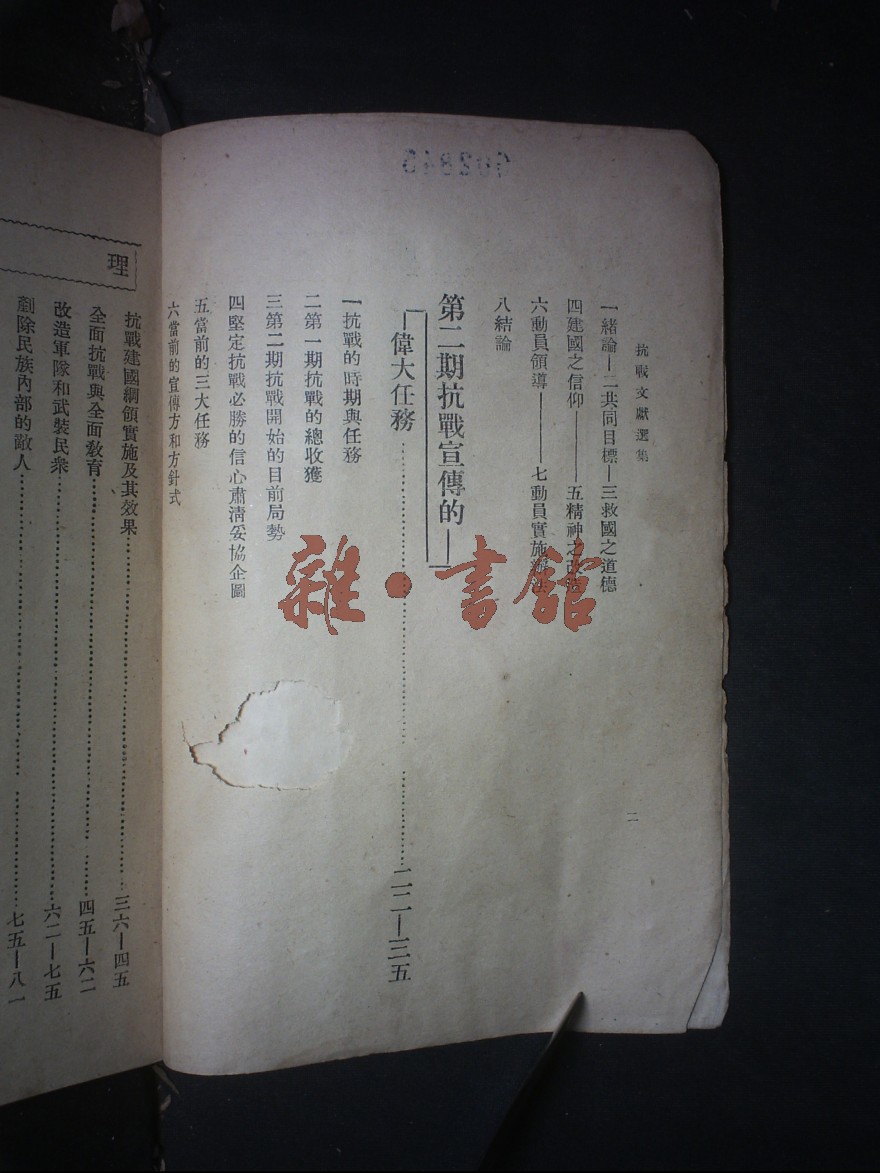 抗戰文獻選集
二
一緒論—二共同目標—三救國之道德
四建國之信仰———五精神之改造
六動員領導———七動員實施辦法
八結論
第二期抗戰宣傳的—
—偉大任務……二二—三五
一抗戰的時期與任務
二第一期抗戰的總收獲
三第二期抗戰開始的目前局勢
四堅定抗戰必勝的信心肅清妥協企圖
五當前的三大任務
六當前的宣傳方和方針式
理
抗戰建國綱領實施及其效果……三六—四五
全面抗戰與全面教育……四五—六二
改造軍隊和武裝民衆……六二—七五
剷除民族內部的敵人……七五—八一
雜·書館
002845